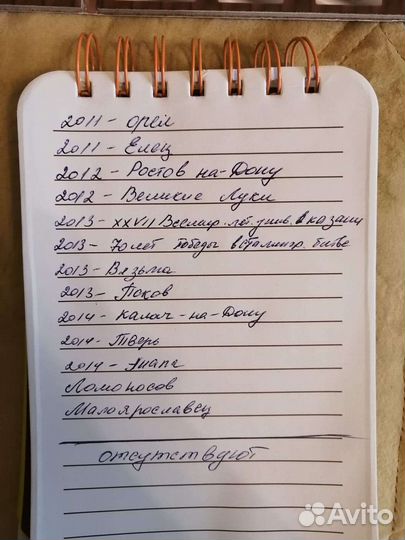 2011 - орёл
2011 - Елец
2012 - Ростов на-Дону
2012 - Великие Луки
2013 - XXVII Всемир. лет. унив. в казани
2013 - 70 лет победы в сталингр. битве
2013 - Вязьма
2013 - Псков
2014 - Калач-на-Дону
2014 - Тверь
2014 - Анапа
Ломоносов
Малоярославец
отсутствуют
Avito